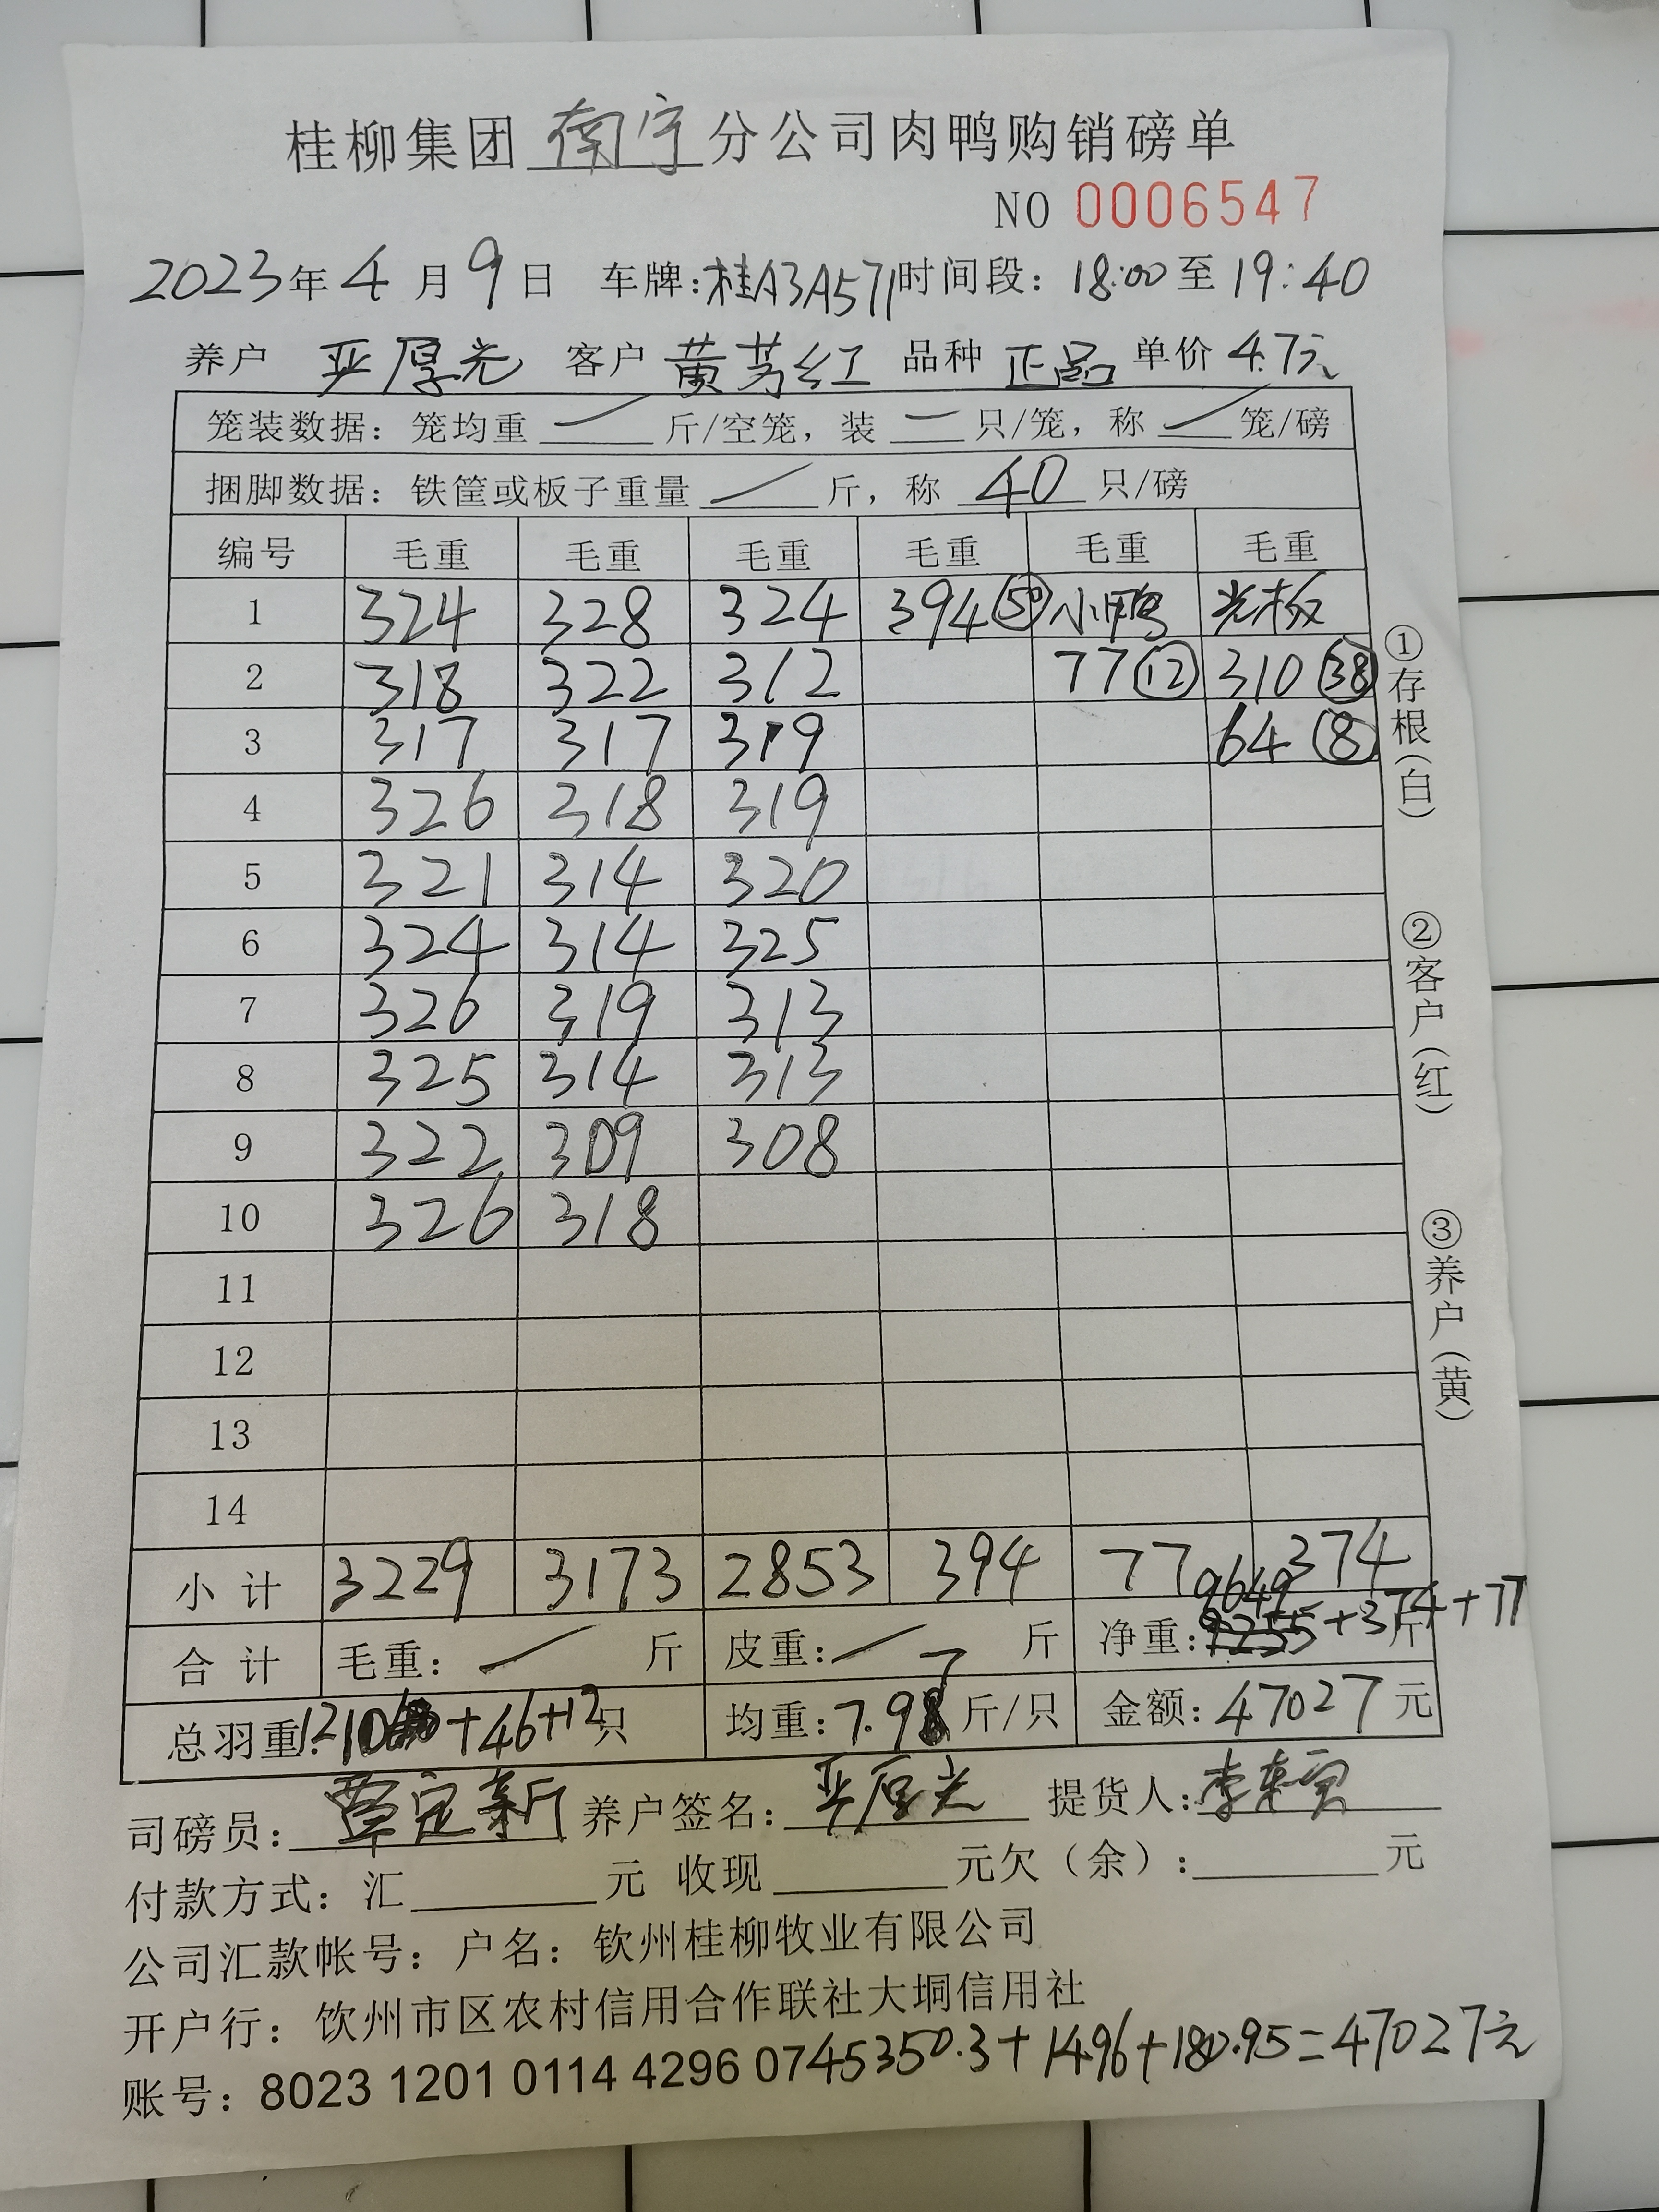 桂柳集团南宁分公司肉鸭购销磅单
NO 0006547
2023年4月9日 车牌:桂A3A571时间段:18:00至19:40
养户 严厚光 客户 黄芳红 品种 正品 单价 4.7元
笼装数据:笼均重 斤/空笼,装 只/笼,称 笼/磅
捆脚数据:铁筐或板子重量 斤,称 40 只/磅
编号 毛重 毛重 毛重 毛重 毛重 毛重
1 324 328 324 394(50) 小鸭 光板
2 318 322 312 77(12) 310(38)
3 317 317 319 64(8)
4 326 318 319
5 321 314 320
6 324 314 325
7 326 319 313
8 325 314 313
9 322 309 308
10 326 318
11
12
13
14
小计 3229 3173 2853 394 77 374
9649
合计 毛重: 斤 皮重: 斤 净重:9255+374+77 斤
总羽重:1210+46+12只 均重:7.97斤/只 金额:47027元
司磅员:覃定新 养户签名:严厚光 提货人:李
付款方式:汇 元 收现 元欠(余): 元
公司汇款帐号:户名:钦州桂柳牧业有限公司
开户行:钦州市区农村信用合作联社大垌信用社
账号:8023 1201 0114 4296 07
45350.3+1496+180.95=47027元
①存根(白)
②客户(红)
③养户(黄)